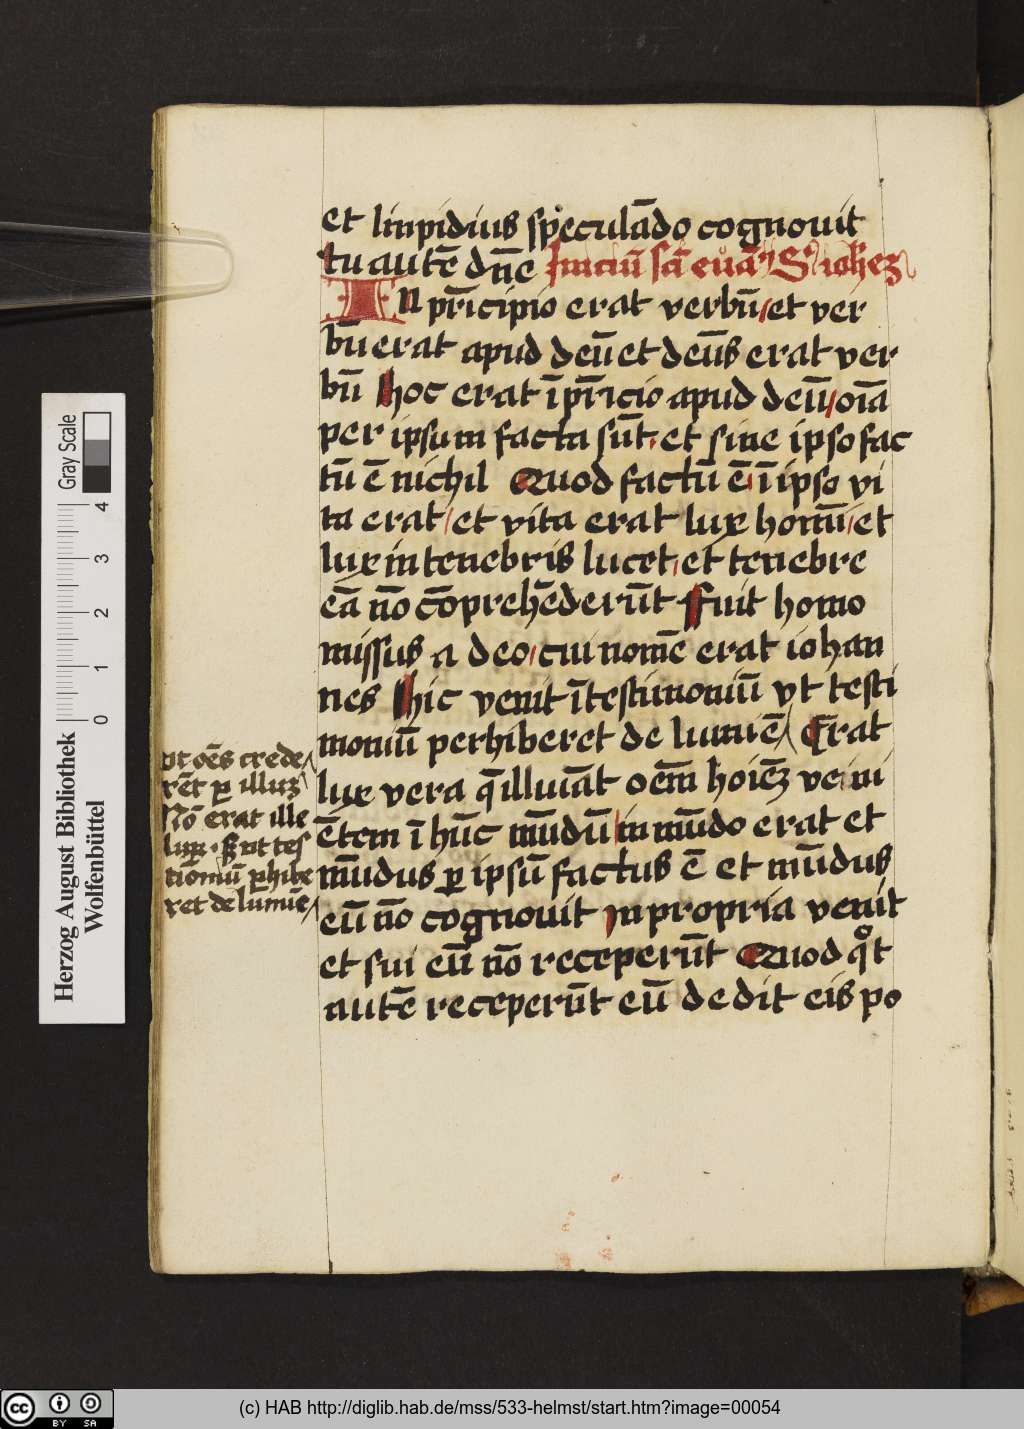 et linpidius speculādo cognouit
tu autē dn̄e Iniciū sc̄i euāᵍ Sᵐ ioħez
In pr̄icipio erat verbū / et ver
bū erat apud deū et deūs erat ver
bū hoc erat ī pr̄icio apud deū / oīa
per ipsum facta sūt. et sine ipso fac
tū ē nichil Quod factū ē / ī ipso vi
ta erat / et vita erat lux homū / et
lux in tenebris lucet / et tenebre
eā nō cōprehēderūt Fuit homo
missus a deo / cui nomē erat iohan
nes hic venit ī testimoniū vt testi
moniū perhiberet de lumīe / Erat
lux vera q̄ illuīāt oēm hoīēz veni
ētem ī hūc mūdū / in mūdo erat et
mūdus ꝑ ipsū factus ē et mūdus
eū nō cognouit in propria venit
et sui eū nō receperūt Quod qͦt
autē receperūt eū dedit eis po
vt oēs crede
rēt ꝑ illuꝫ
Nō erat ille
lux. S ut tes
tiōniū ꝑhibe
ret de lumīe /
Herzog August Bibliothek
Wolfenbüttel
Gray Scale
0 1 2 3 4
cc BY SA
(c) HAB http://diglib.hab.de/mss/533-helmst/start.htm?image=00054